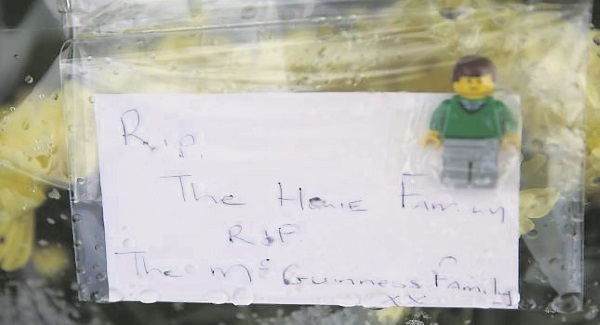 R.I.P.
The Hawe Family
RIP
The Mc Guinness Family
xx